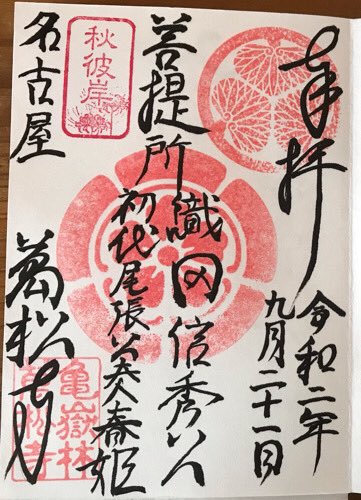 奉拝
令和二年
九月二十一日
菩提所 織田信秀公
初代尾張 英春姫
秋彼岸
名古屋
萬松寺
亀嶽林
萬松寺